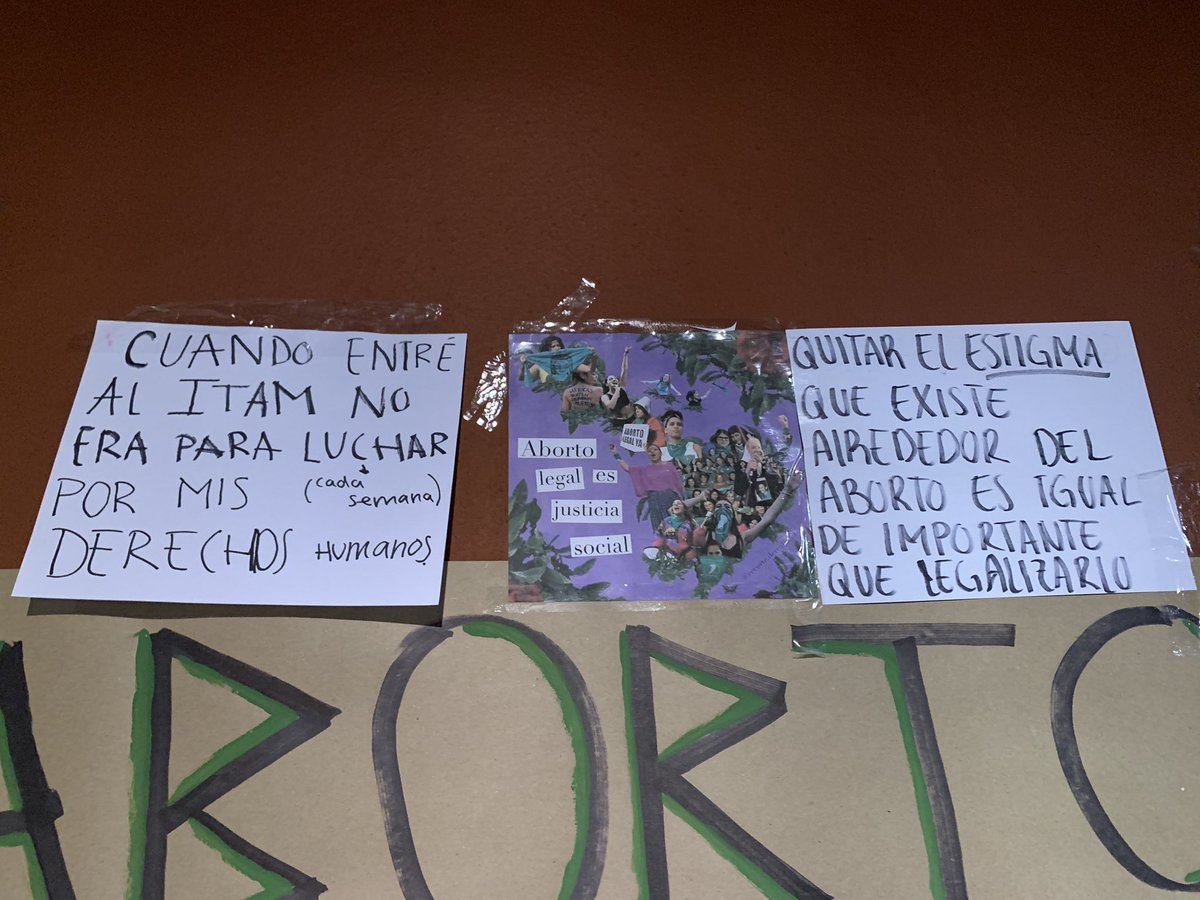 CUANDO ENTRÉ
AL ITAM NO
ERA PARA LUCHAR
POR MIS (cada semana)
DERECHOS HUMANOS.
Aborto
legal es
justicia
social
ABORTO
LEGAL YA
QUITAR EL ESTIGMA
QUE EXISTE
ALREDEDOR DEL
ABORTO ES IGUAL
DE IMPORTANTE
QUE LEGALIZARLO
ABORTO